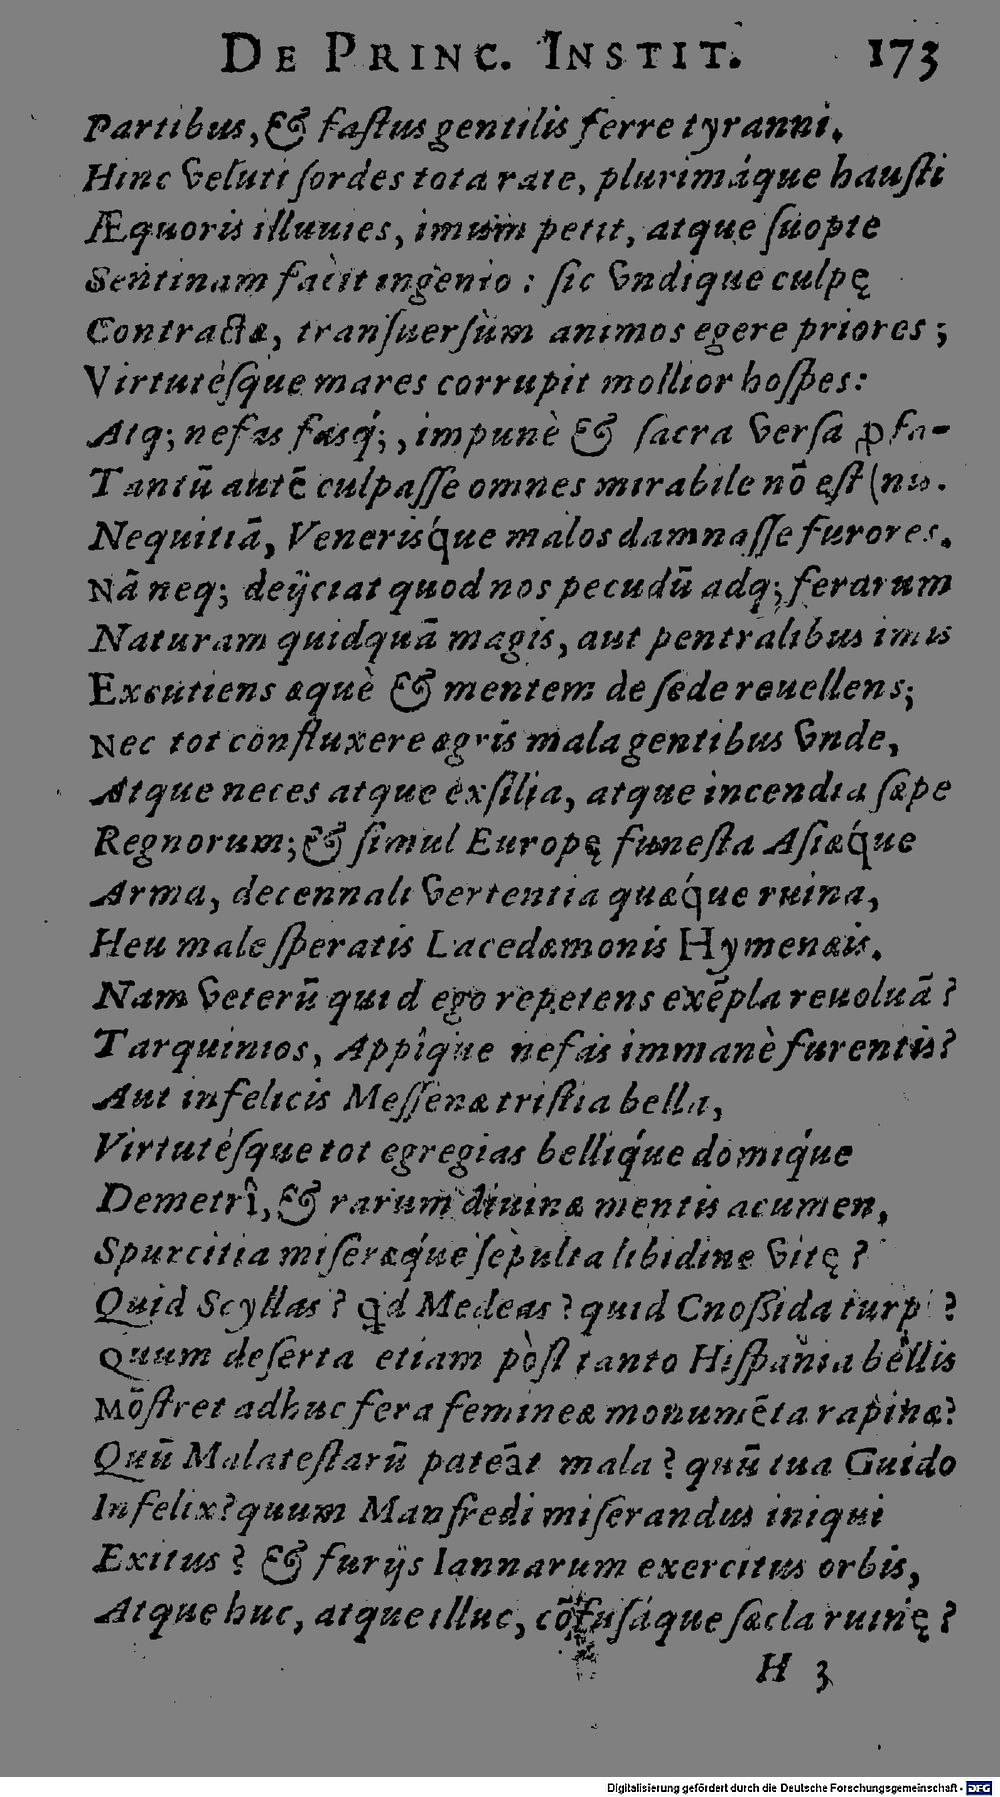 DE PRINC. INSTIT. 173
Partibus, & fastus gentilis ferre tyranni.
Hinc veluti sordes tota rate, plurimáque hausti
Æquoris illuuies, imum petit, atque suopte
Sentinam facit ingenio : sic vndique culpę
Contractæ, transuersùm animos egere priores ;
Virtutésque mares corrupit mollior hospes:
Atq; nefas fasq́;, impunè & sacra versa ꝓ fa-
Tantũ autẽ culpasse omnes mirabile nõ est (no.
Nequitiã, Venerisq́ue malos damnasse furores.
Nã neq; deijciat quod nos pecudũ adq; ferarum
Naturam quidquã magis, aut pentralibus imis
Excutiens æquè & mentem de sede reuellens;
Nec tot confluxere ægris mala gentibus vnde,
Atque neces atque exsilia, atque incendia sæpe
Regnorum; & simul Europę funesta Asiæq́ue
Arma, decennali vertentia quæq́ue ruina,
Heu male speratis Lacedæmonis Hymenæis.
Nam veterũ quid ego repetens exẽpla reuoluã ?
Tarquinios, Appîque nefas immanè furentis?
Aut infelicis Messenæ tristia bella,
Virtutésque tot egregias belliq́ue domiq́ue
Demetrî, & rarum diuinæ mentis acumen,
Spurcitia miseræq́ue sepulta libidine vitę ?
Quid Scyllas ? qd Medeas ? quid Cnossida turp ?
Quum deserta etiam pòst tanto Hispania bellis
Mõstret adhuc fera femineæ monumẽta rapinæ?
Quũ Malatestarũ pateãt mala ? quũ tua Guido
Infelix? quum Manfredi miserandus iniqui
Exitus ? & furijs Iannarum exercitus orbis,
Atque huc, atque illuc, cõfusáque sæcla ruinę ?
H 3
Digitalisierung gefördert durch die Deutsche Forschungsgemeinschaft - DFG